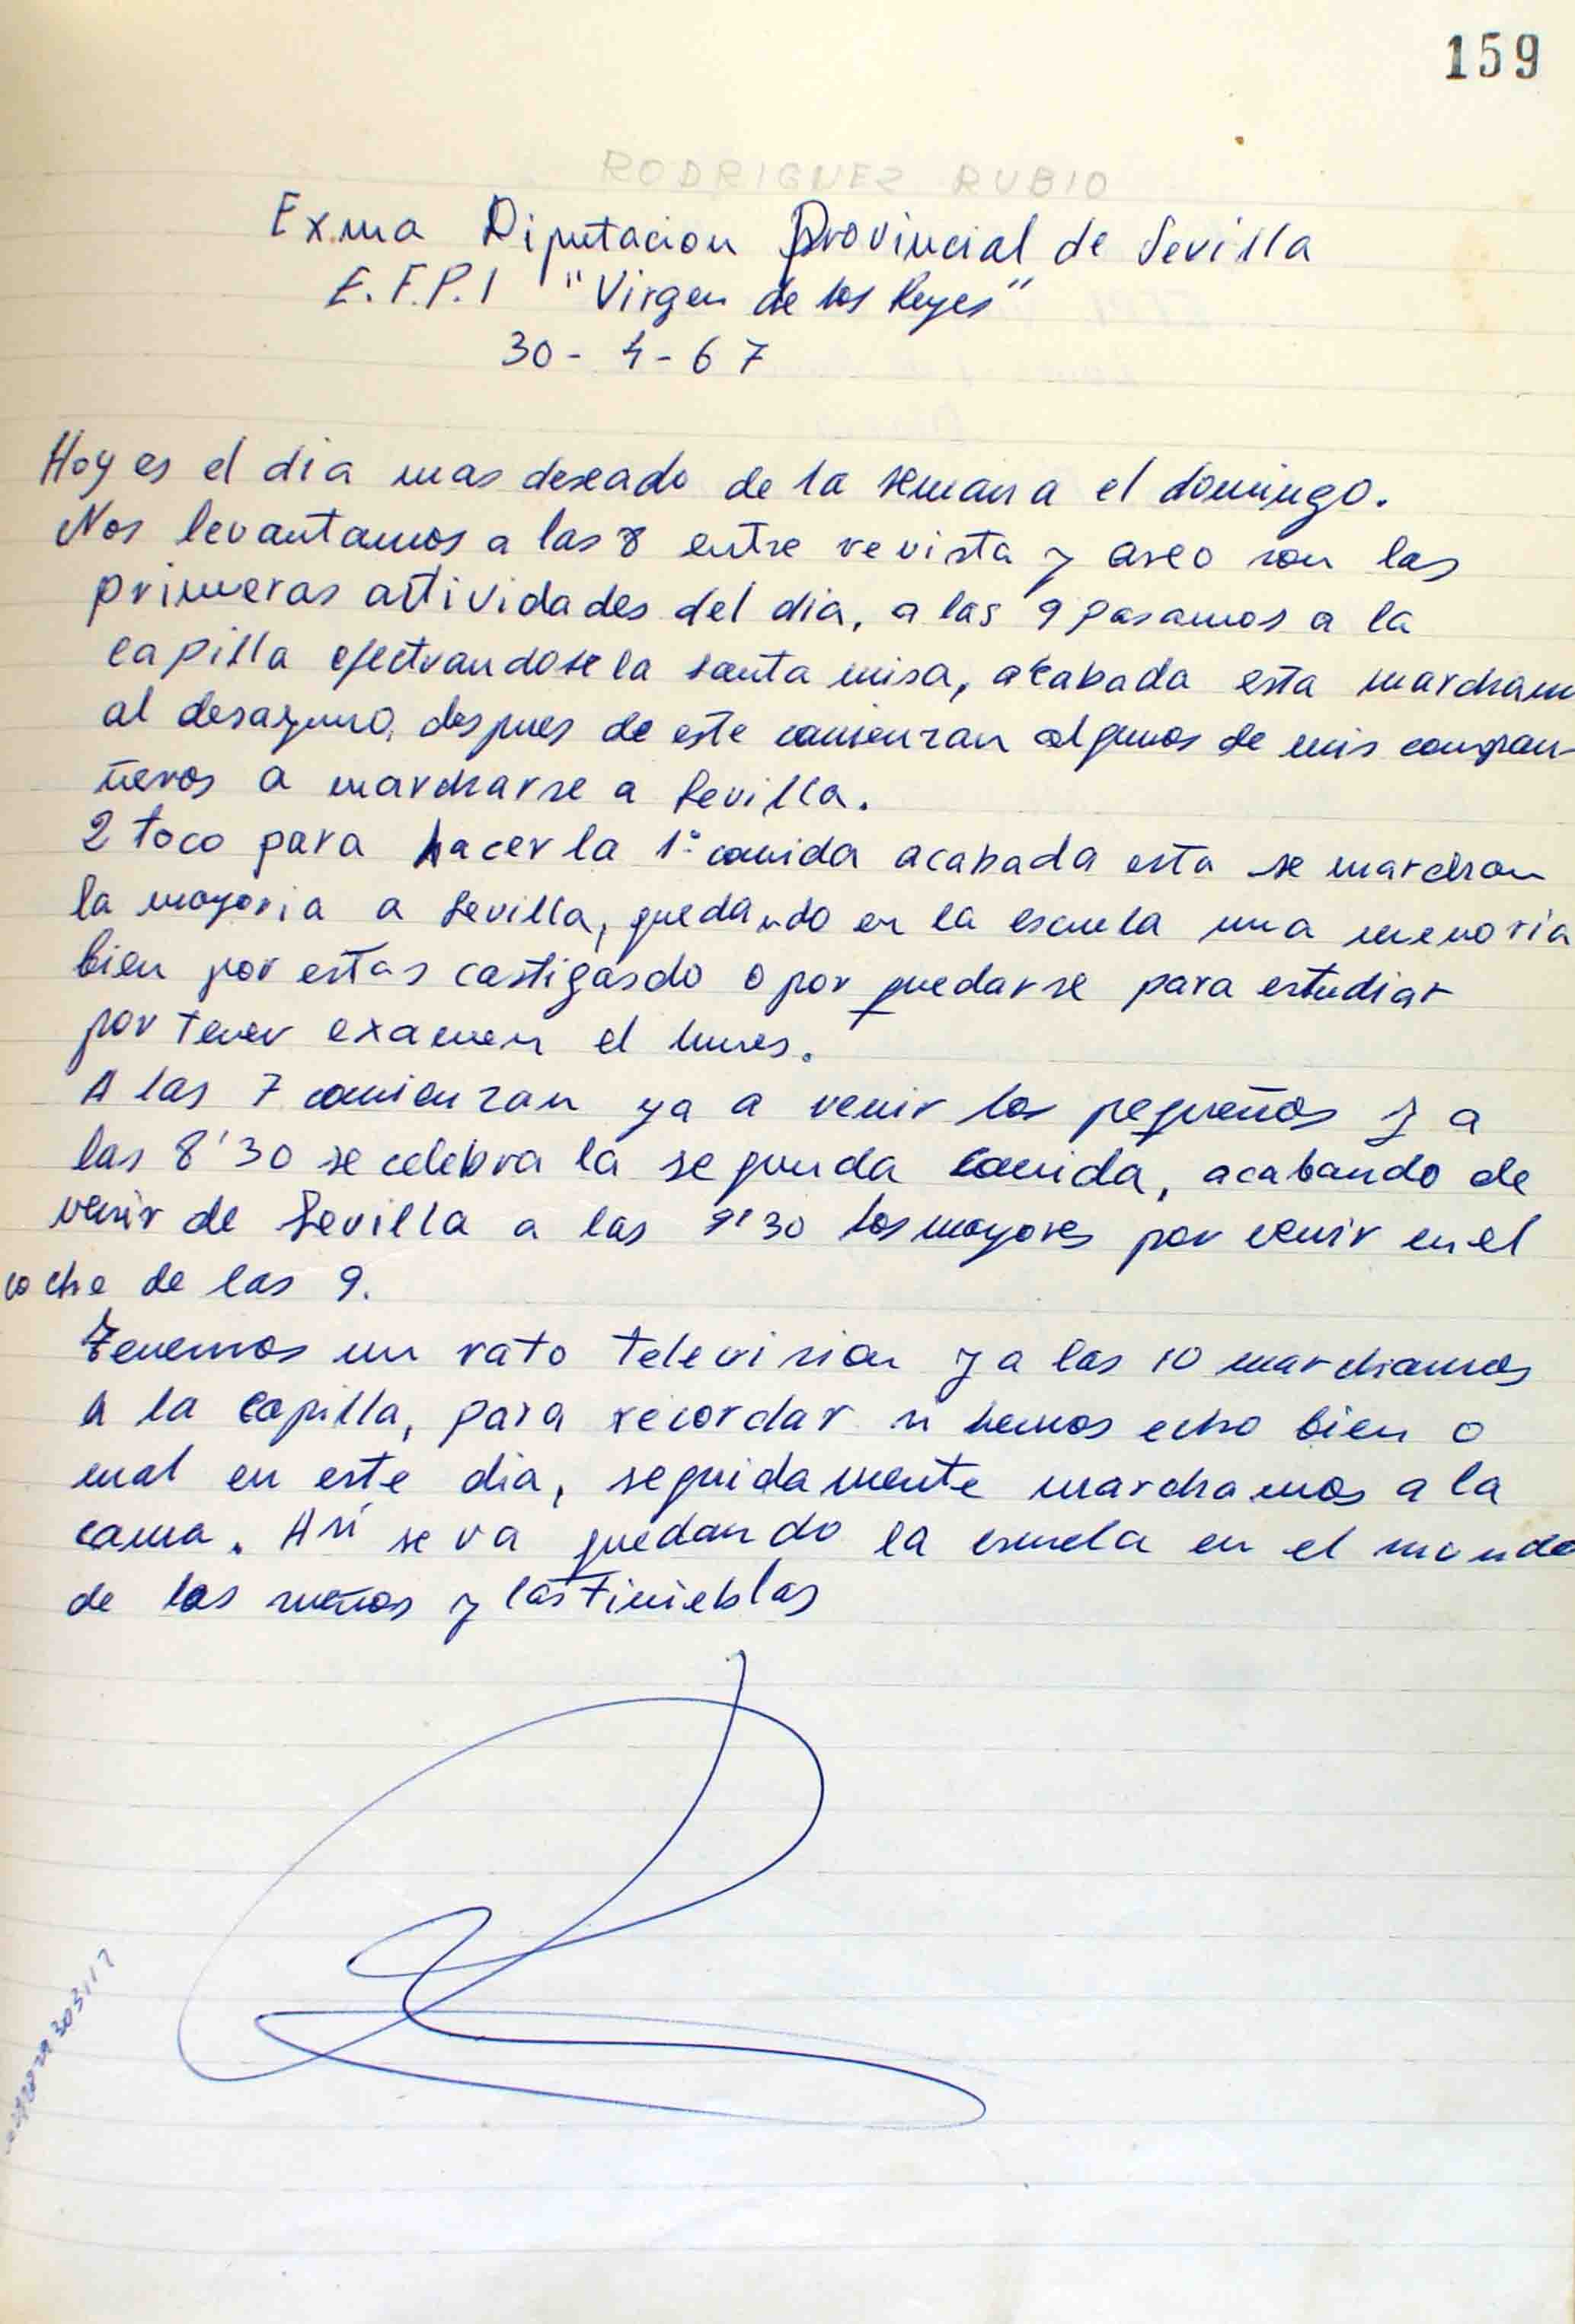 159
RODRIGUEZ RUBIO
Exma Diputacion Provincial de Sevilla
E.F.P.I "Virgen de los Reyes"
30-4-67
Hoy es el dia mas deseado de la semana el domingo.
Nos levantamos a las 8 entre revista y aseo son las
primeras actividades del dia, a las 9 pasamos a la
capilla efectuandose la santa misa, acabada esta marcham
al desayuno, despues de este comienzan algunos de mis compan-
ñeros a marcharse a Sevilla.
2 toco para hacer la 1º comida acabada esta se marchan
la mayoria a Sevilla, quedando en la escuela una menoria
bien por estas castigasdo o por quedarse para estudiar
por tener examen el lunes.
A las 7 comienzan ya a venir los pequeños y a
las 8'30 se celebra la segunda comida, acabando de
venir de Sevilla a las 9'30 los mayores por venir en el
coche de las 9.
Tenemos un rato television y a las 10 marchamos
a la capilla, para recordar si hemos echo bien o
mal en este dia, seguidamente marchamos a la
cama. Así se va quedando la escuela en el mundo
de los sueños y las tinieblas